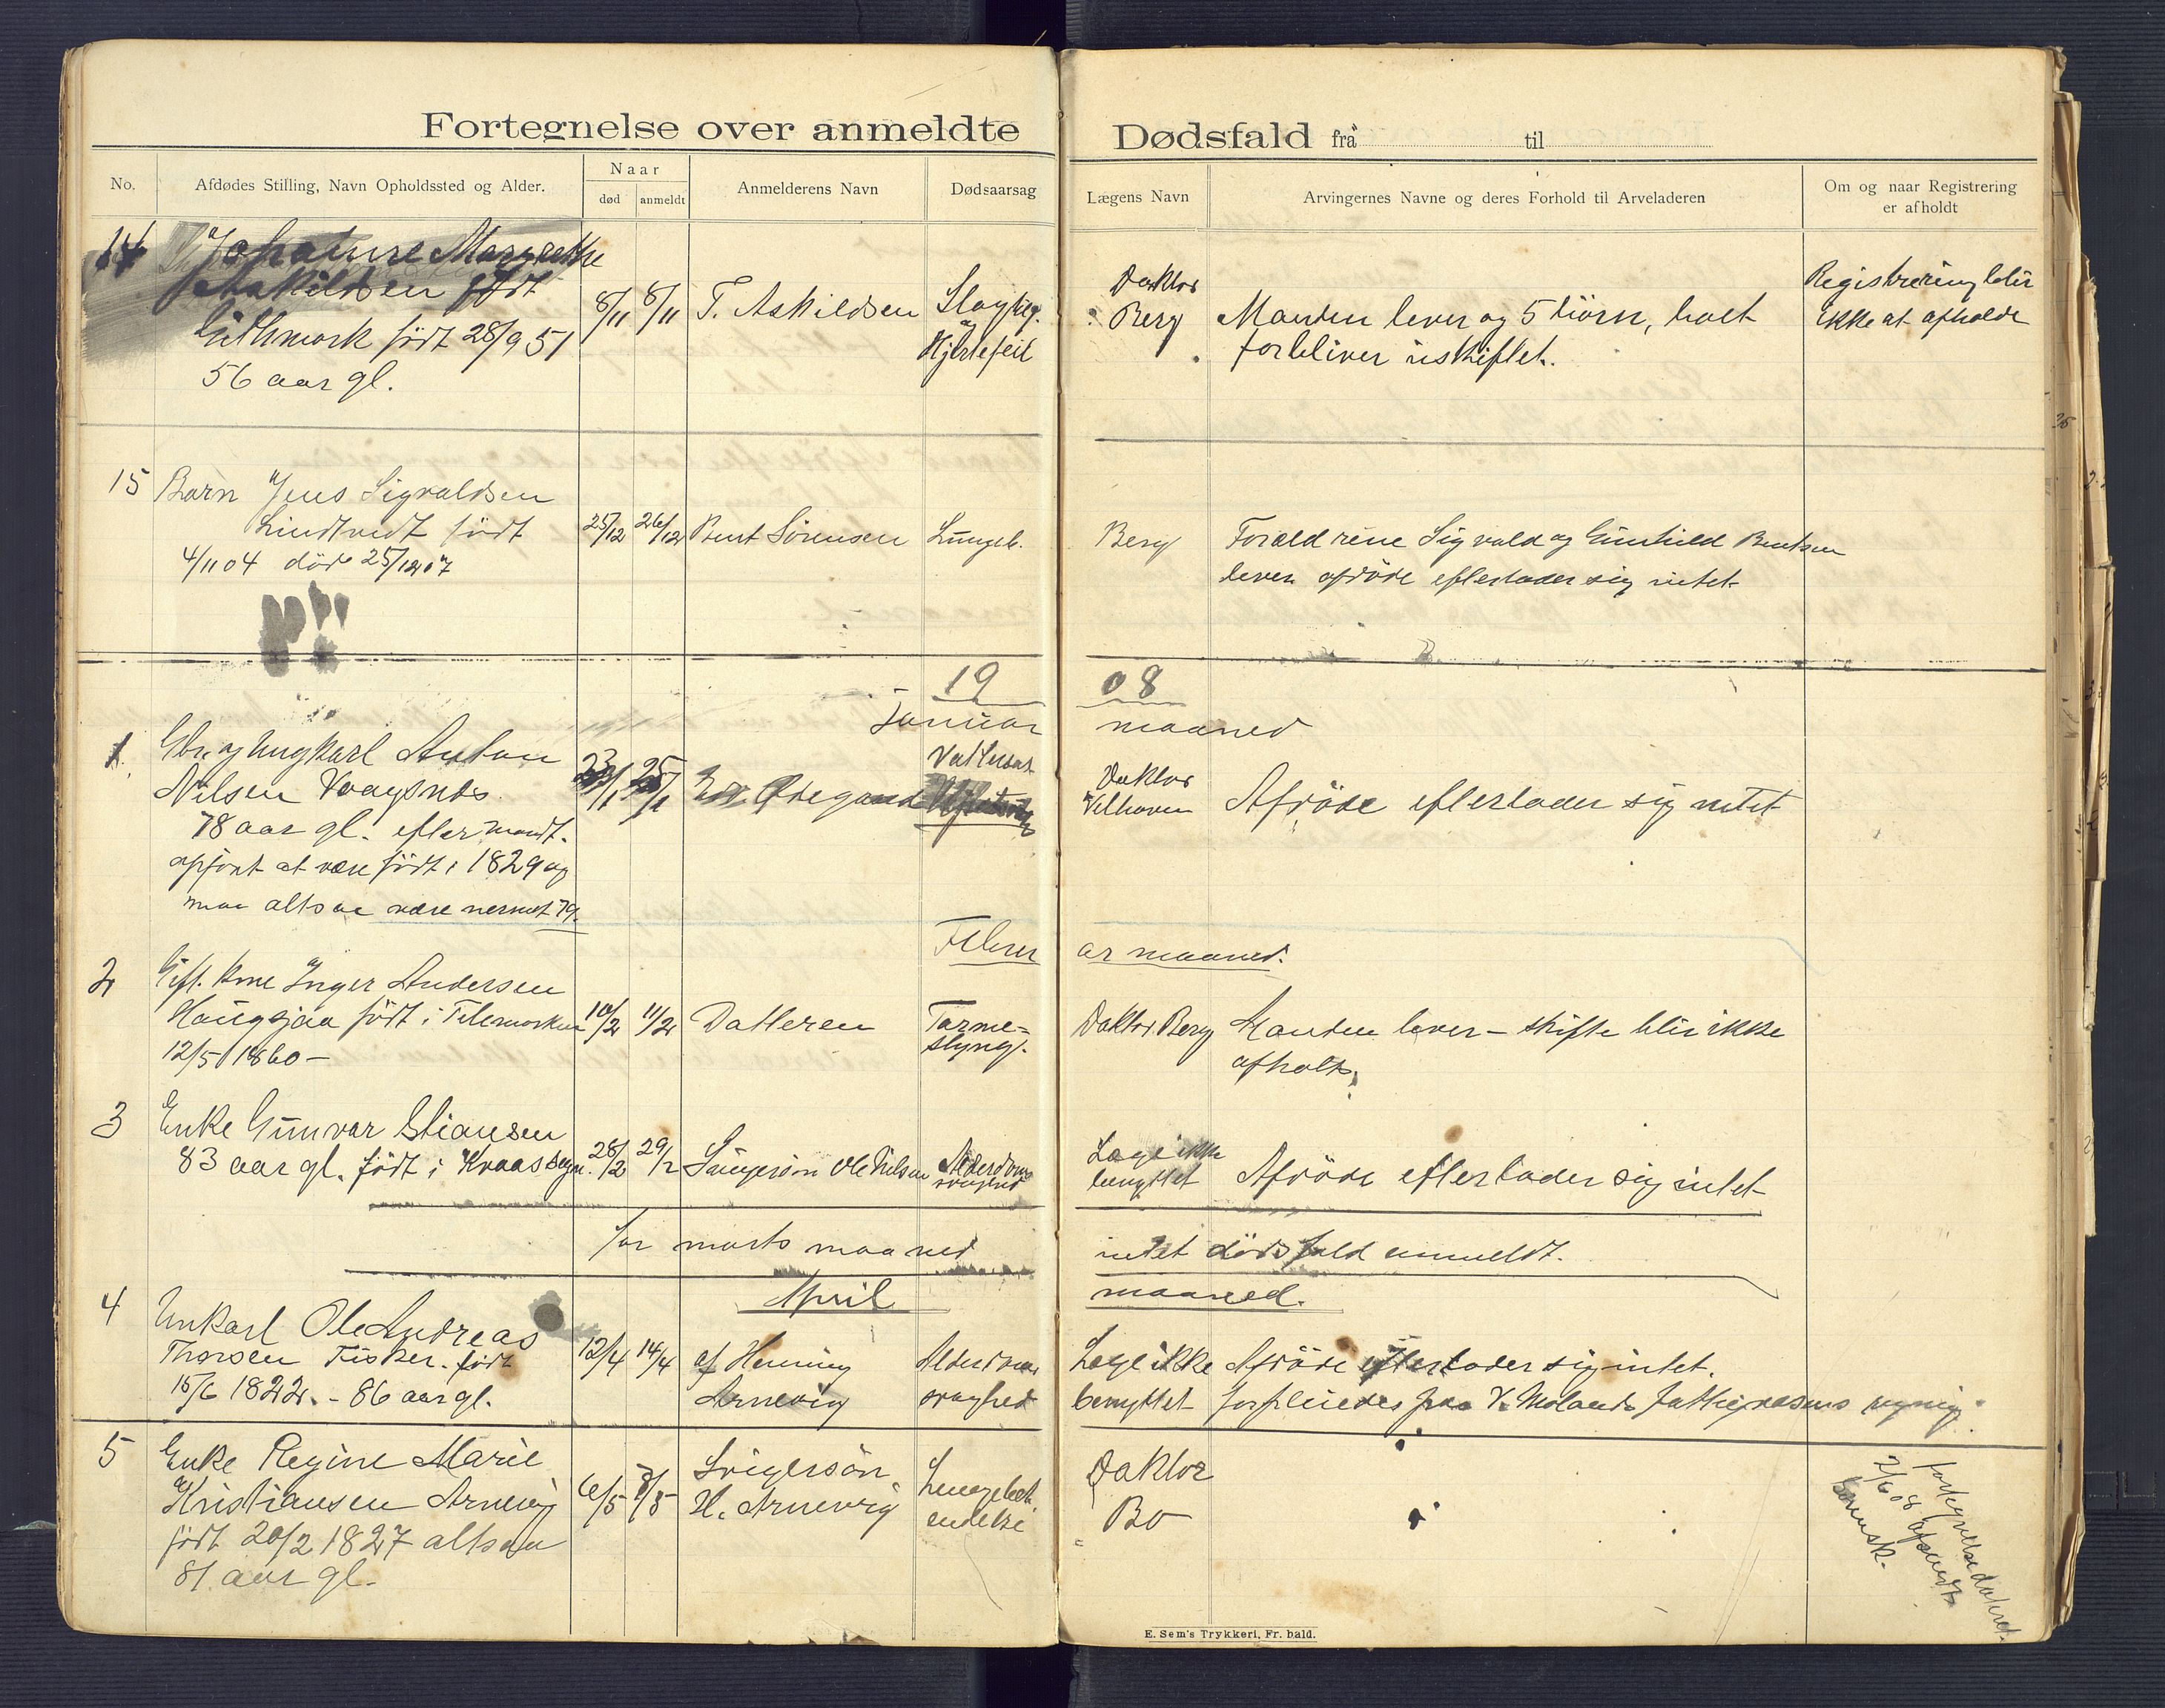 Fortegnelse over anmeldte Dødsfald fra til
No.
Afdødes Stilling, Navn Opholdssted og Alder.
Naar
død
anmeldt
Anmelderens Navn
Dødsaarsag
Lægens Navn
Arvingernes Navne og deres Forhold til Arveladeren
Om og naar Registrering
er afholdt
14
Johanne Margrethe
Askildsen født
født 28/9 51
56 aar gl.
8/11
8/11
T. Askildsen
Slag
Hjertefeil
Doktor
Berg
Manden lever og 5 börn, boet
forbliver uskiftet.
Registrering blir
ikke at afholde
15
Barn Jens Sigvaldsen
Lindtvedt födt
4/11 04 död 25/12 07
25/12
26/12
Bent Sörensen
Lungeb.
Berg
Forældrene Sigvald og Gunhild Bentsen
lever afdöde efterlader sig intet
19 08
Januar maaned
1
Ungkarl Anton
Nilsen Vaagsnes
78 aar gl. efter mandt.
opfört at være födt i 1829 og
maa altsaa være nermest 79.
23/1
25/1
Ødegaard
Doktor
Velhaven
Afdöde efterlader sig intet
Februar maaned.
2
Gift. kone Inger Andersen
Haugsjaa födt i Telemarken
12/5 1860 -
10/2
11/2
Datteren
Tarme-
slyng.
Doktor Berg
Manden lever - skifte blir ikke
afholt.
3
Enke Gunvor Stiansen
83 aar gl. födt i Kvaas sogn.
28/2
29/2
Ole Nilsen
Alderdoms
svaghed
Læge ikke
benyttet
Afdöde efterlader sig intet
for marts maaned intet dödsfald anmeldt.
April maaned.
4
Unkarl Ole Andreas
Thorsen Fisker. födt
15/6 1822. - 86 aar gl.
12/4
14/4
af Henning
Arnevig
Alderdoms
svaghed
Læge ikke
benyttet
Afdöde efterlader sig intet.
forpleiedes paa V. Molands fattigvæsens
5
Enke Regine Marie
Kristiansen Arnevig
födt 20/2 1827 altsaa
81 aar gl.
6/5
8/5
Svigersön
H. Arnevig
Lungebet
endelse
Doktor
Bo
2/6 08 afsendt